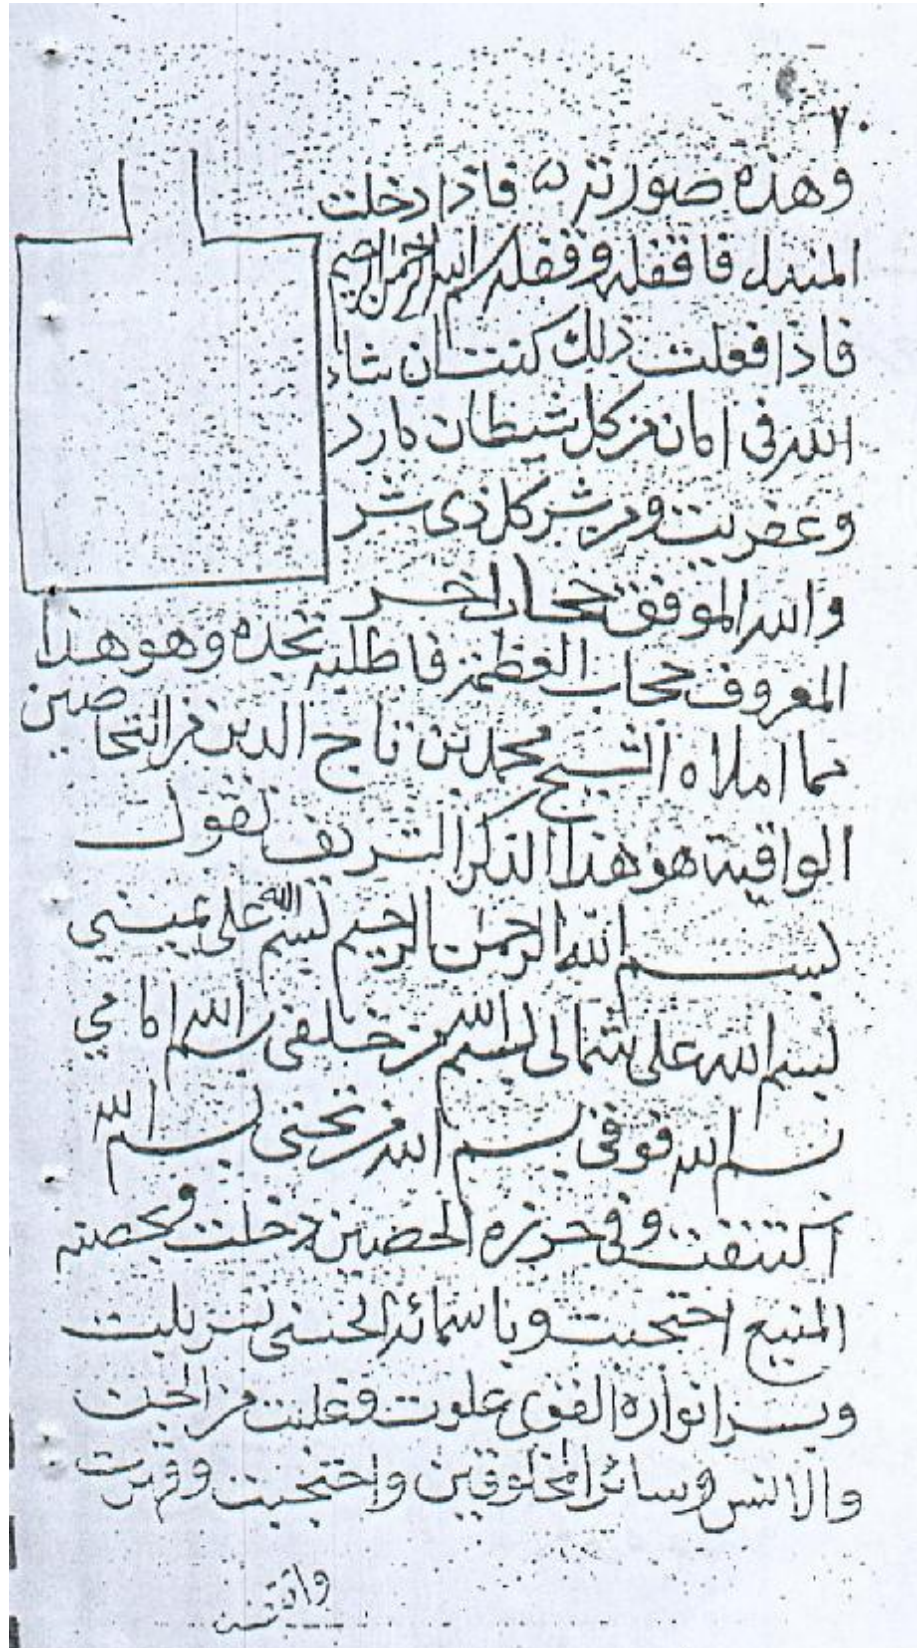 ٧٠
وهذه صورته فاذا دخلت
المندل فاقفله وقفله بسم الله الرحمن الرحيم
فاذا فعلت ذلك كنت ان شاء
الله في امان من كل شيطان مارد
وعفريت ومن شر كل ذي شر
والله الموفق حجاب اخر
المعروف حجاب العظمة فاطلبه تجده وهو هذا
مما املاه الشيخ محمد بن تاج الدين من التحاصين
الواقية هو هذا الذكر الشريف تقول
بسم الله الرحمن الرحيم بسم الله على يميني
بسم الله على شمالي بسم الله من خلفي بسم الله امامي
بسم الله فوقي بسم الله من تحتي بسم الله
اكتنفت وفي حرزه الحصين دخلت وبحصنه
المنيع احتجبت وباسمائه الحسنى تسربلت
وبسر انواره القوي علوت وغلبت من الجن
والانس وسائر المخلوقين واحتجبت وقهرت